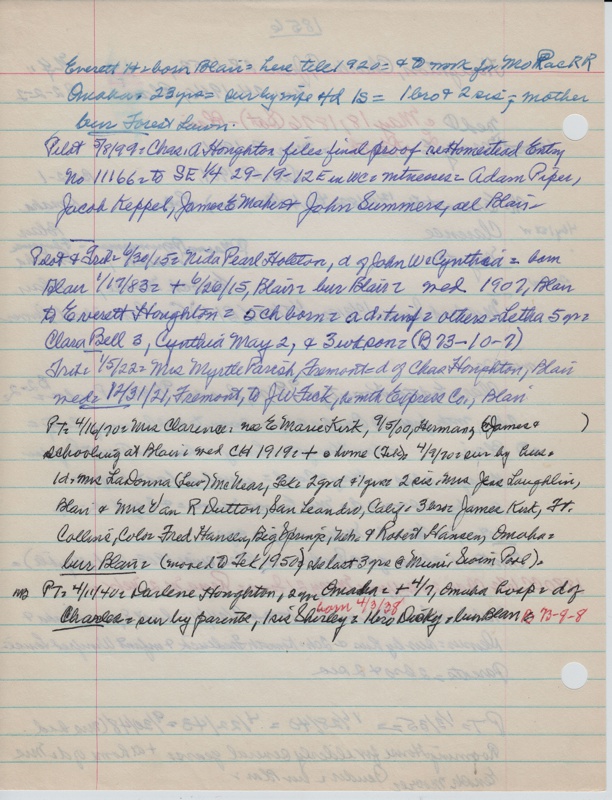 Everett H = born Blair = here till 1920 = & to work for Mo Pac RR
Omaha = 23 yrs = sur by wife 4 d 1 s = 1 bro & 2 sis; = mother
bur Forest Lawn.
Pilot 5/8/99 = Chas. A Houghton files final proof on Homestead Entry
No 11166 = to SE 1/4 29-19-12 E in WC = witnesses = Adam Piper,
Jacob Keppel, James E Maher & John Summers, all Blair -
Pilot & Trib = 6/30/15 = Nida Pearl Holston, d of John W & Cynthia = born
Blair 1/17/83 = + 6/26/15, Blair = bur Blair = wed 1907, Blair
to Everett Houghton = 5 ch born = a d + inf = others = Letha 5 yr =
Clara Bell 3, Cynthia May 2, & 3 wk son = (B 73-10-7)
Trib = 1/5/22 = Mrs Myrtle Parish, Fremont = d of Chas Houghton, Blair
wed = 12/31/21, Fremont, to J W Fick, with Express Co., Blair
PT = 4/16/70 = Mrs Clarence = nee E Marie Kirk, 9/5/00, Herman, (James & )
schooling at Blair = wed CH 1919 = + @ home (Tek) 4/9/70 = sur by hus =
1 d = Mrs LaDonna (Leo) McNear, Tek 2 grd + 1 grs = 2 sis = Mrs Jess Laughlin,
Blair & Mrs Van R Dutton, San Leandro, Calif = 3 bro = James Kirk, Ft.
Collins, Colo = Fred Hansen, Big Springs, Nebr & Robert Hansen, Omaha =
bur Blair = (moved to Tek 1950) last 3 yrs @ Muni Swim Pool) =
PT = 4/11/40 = Darlene Houghton, 2 yr Omaha = + 4/7, Omaha hosp = d of
born 4/3/38
Charles = sur by parents, 1 sis Shirley = 1 bro Dicky = bur Blair B 73-9-8